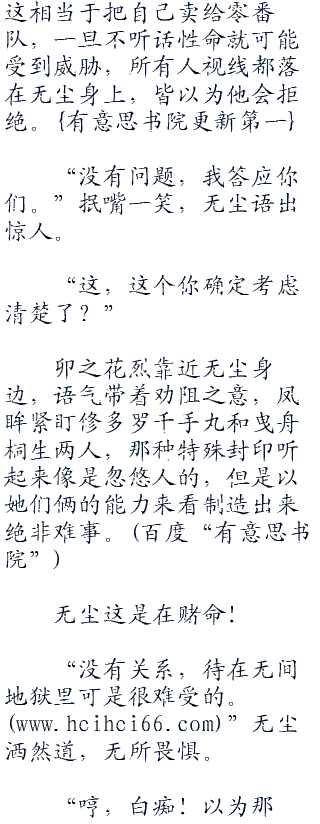 这相当于把自己卖给零番
队，一旦不听话性命就可能
受到威胁，所有人视线都落
在无尘身上，皆以为他会拒
绝。{有意思书院更新第一}
“没有问题，我答应你
们。”抿嘴一笑，无尘语出
惊人。
“这，这个你确定考虑
清楚了？”
卯之花烈靠近无尘身
边，语气带着劝阻之意，凤
眸紧盯修多罗千手丸和曳舟
桐生两人，那种特殊封印听
起来像是忽悠人的，但是以
她们俩的能力来看制造出来
绝非难事。(百度“有意思书
院”)
无尘这是在赌命！
“没有关系，待在无间
地狱里可是很难受的。
(www.hcihci66.com)”无尘
洒然道，无所畏惧。
“哼，白痴！以为那